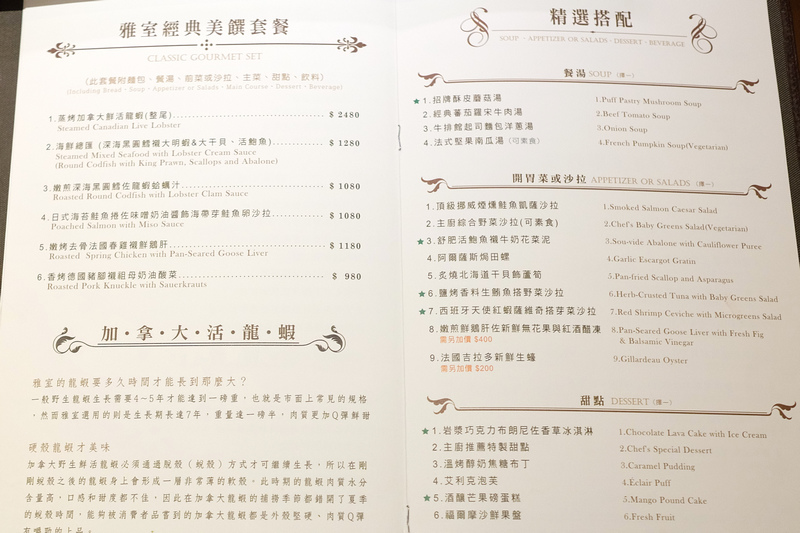 雅室經典美饌套餐
CLASSIC GOURMET SET
(此套餐附麵包、餐湯、前菜或沙拉、主菜、甜點、飲料)
(Including Bread、Soup、Appetizer or Salads、Main Course、Dessert、Beverage)
1.蒸烤加拿大鮮活龍蝦(整尾) $ 2480
Steamed Canadian Live Lobster
2.海鮮總匯 (深海黑圓鱈襯大明蝦&大干貝、活鮑魚) $ 1280
Steamed Mixed Seafood with Lobster Cream Sauce
(Round Codfish with King Prawn, Scallops and Abalone)
3.嫩煎深海黑圓鱈佐龍蝦蛤蠣汁 $ 1080
Roasted Round Codfish with Lobster Clam Sauce
4.日式海苔鮭魚捲佐味噌奶油醬飾海帶芽鮭魚卵沙拉 $ 1080
Poached Salmon with Miso Sauce
5.嫩烤去骨法國春雞襯鮮鵝肝 $ 1180
Roasted Spring Chicken with Pan-Seared Goose Liver
6.香烤德國豬腳襯祖母奶油酸菜 $ 980
Roasted Pork Knuckle with Sauerkrauts
加・拿・大・活・龍・蝦
雅室的龍蝦要多久時間才能長到那麼大？
一般野生龍蝦生長需要4~5年才能達到一磅重，也就是市面上常見的規格
，然而雅室選用的則是生長期長達7年，重量達一磅半，肉質更加Q彈鮮甜
硬殼龍蝦才美味
加拿大野生鮮活龍蝦必須通過脫殼（蛻殼）方式才可繼續生長，所以在剛
剛蛻殼之後的龍蝦身上會形成一層非常薄的軟殼。此時期的龍蝦肉質水分
含量高，口感和甜度都不佳，因此在加拿大龍蝦的捕撈季節都錯開了夏季
的蛻殼時間，能夠被消費者品嘗到的加拿大龍蝦都是外殼堅硬、肉質Q彈
精選搭配
SOUP、APPETIZER OR SALADS、DESSERT、BEVERAGE
餐湯 SOUP (擇一)
★1.招牌酥皮蘑菇湯 1.Puff Pastry Mushroom Soup
2.經典蕃茄羅宋牛肉湯 2.Beef Tomato Soup
3.牛排館起司麵包洋蔥湯 3.Onion Soup
4.法式堅果南瓜湯 (可素食) 4.French Pumpkin Soup(Vegetarian)
開胃菜或沙拉 APPETIZER OR SALADS (擇一)
1.頂級挪威煙燻鮭魚凱薩沙拉 1.Smoked Salmon Caesar Salad
2.主廚綜合野菜沙拉(可素食) 2.Chef's Baby Greens Salad(Vegetarian)
★3.舒肥活鮑魚襯牛奶花菜泥 3.Sou-vide Abalone with Cauliflower Puree
4.阿爾薩斯焗田螺 4.Garlic Escargot Gratin
5.炙燒北海道干貝飾蘆筍 5.Pan-fried Scallop and Asparagus
★6.鹽烤香料生鮪魚搭野菜沙拉 6.Herb-Crusted Tuna with Baby Greens Salad
★7.西班牙天使紅蝦薩維奇搭芽菜沙拉 7.Red Shrimp Ceviche with Microgreens Salad
8.嫩煎鮮鵝肝佐新鮮無花果與紅酒醋凍 8.Pan-Seared Goose Liver with Fresh Fig
需另加價 $400 & Balsamic Vinegar
9.法國吉拉多新鮮生蠔 9.Gillardeau Oyster
需另加價 $200
甜點 DESSERT (擇一)
★1.岩漿巧克力布朗尼佐香草冰淇淋 1.Chocolate Lava Cake with Ice Cream
2.主廚推薦特製甜點 2.Chef's Special Dessert
3.溫烤醇奶焦糖布丁 3.Caramel Pudding
4.艾利克泡芙 4.Éclair Puff
★5.酒釀芒果磅蛋糕 5.Mango Pound Cake
6.福爾摩沙鮮果盤 6.Fresh Fruit